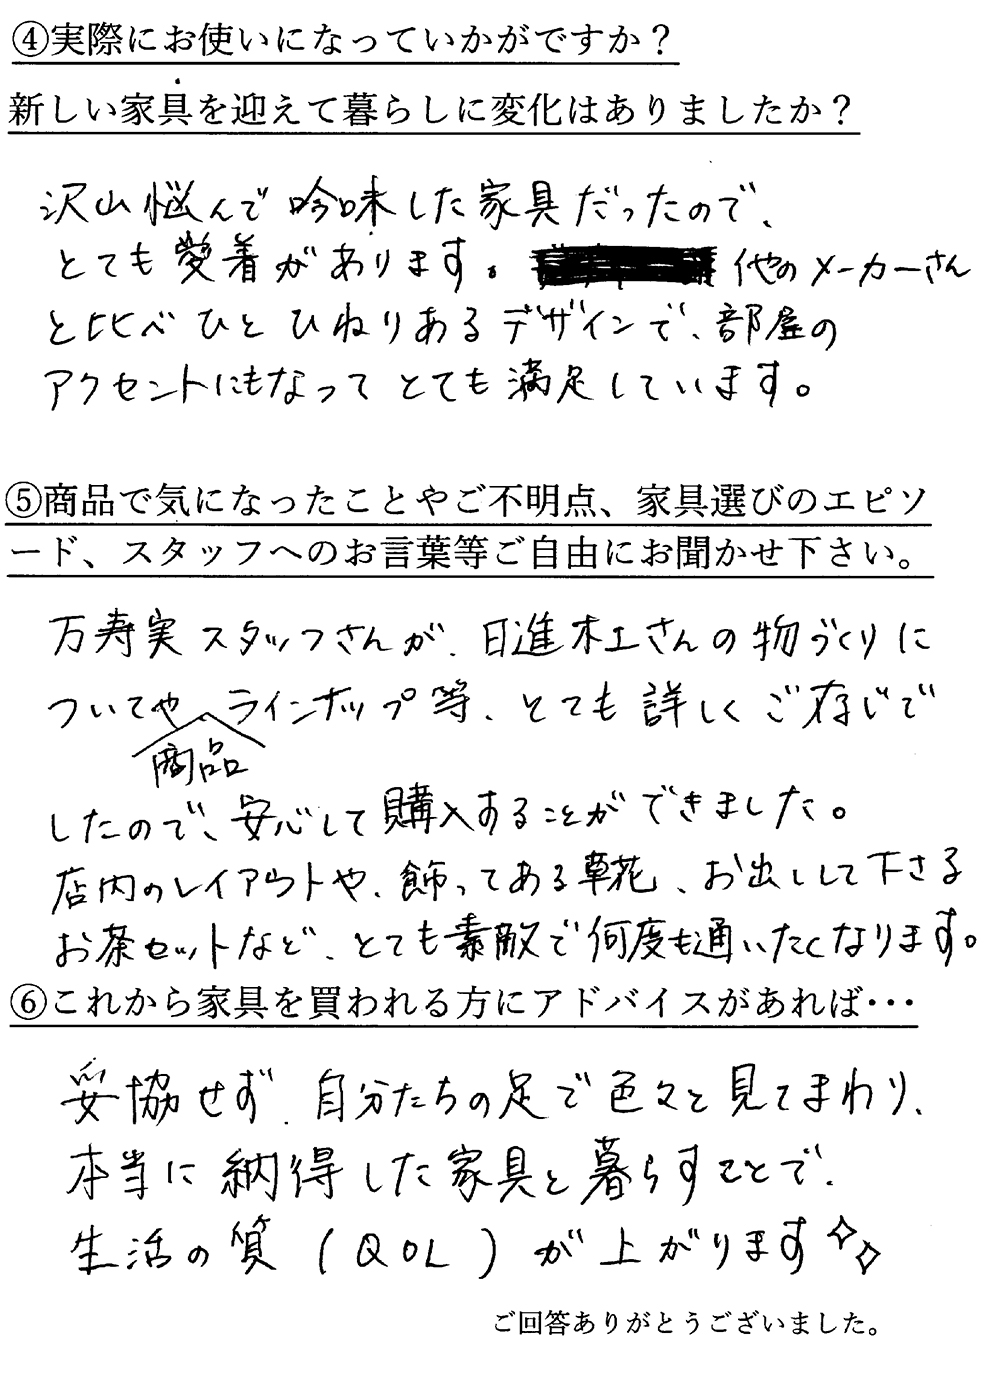 ④実際にお使いになっていかがですか？
新しい家具を迎えて暮らしに変化はありましたか？
沢山悩んで吟味した家具だったので、
とても愛着があります。他のメーカーさん
と比べひとひねりあるデザインで、部屋の
アクセントにもなってとても満足しています。
⑤商品で気になったことやご不明点、家具選びのエピソ
ード、スタッフへのお言葉等ご自由にお聞かせ下さい。
万寿実スタッフさんが、日進木工さんの物づくりに
ついてや商品ラインナップ等、とても詳しくご存じで
したので、安心して購入することができました。
店内のレイアウトや、飾ってある草花、お出しして下さる
お茶セットなど、とても素敵で何度も通いたくなります。
⑥これから家具を買われる方にアドバイスがあれば・・・
妥協せず、自分たちの足で色々と見てまわり、
本当に納得した家具と暮らすことで、
生活の質（QOL）が上がります✧✧
ご回答ありがとうございました。